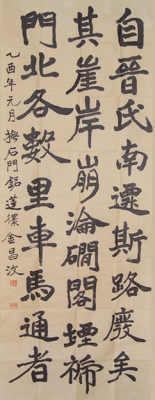 自晉氏南遷斯路廢矣
其崖岸崩淪磵閣堙褫
門北各數里車馬通者
乙酉年元月撫石門銘蓮金昌